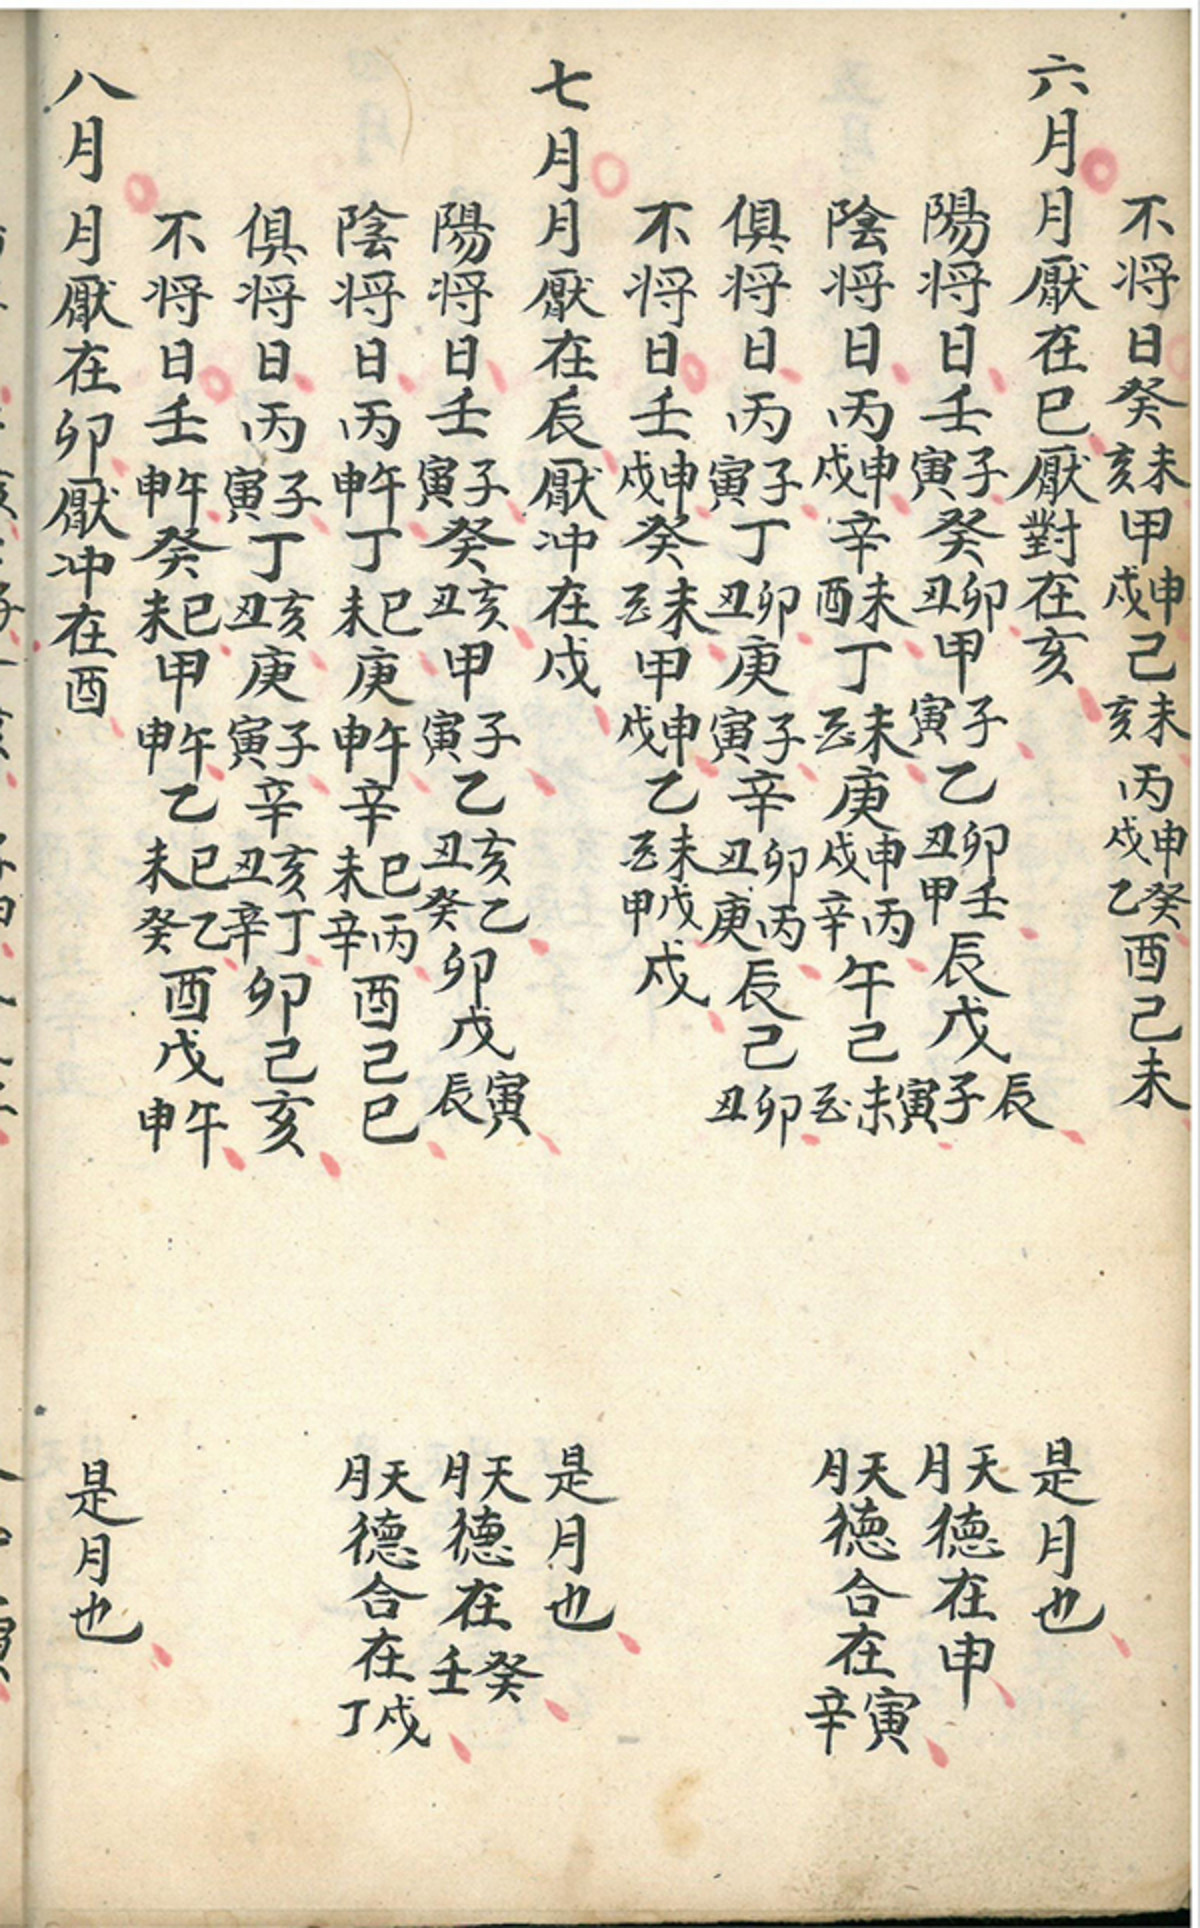 不将日癸未亥甲申戌己未亥丙申戌癸乙酉己未
六月月厭在巳厭對在亥 是月也
陽将日壬子寅癸卯丑甲子寅乙卯丑壬甲辰戊辰子寅 天月德在申
陰将日丙申戌辛未酉丁未酉庚申戌丙辛午己未酉 天月德合在寅辛
俱将日丙子寅丁卯丑庚子寅辛卯丑丙庚辰己卯丑
不将日壬申戌癸未酉甲申戌乙未酉戊甲戌
七月月厭在辰厭冲在戌 是月也
陽将日壬子寅癸亥丑甲子寅乙亥丑乙癸卯戊寅辰 天月德在癸壬
陰将日丙午申丁巳未庚午申辛巳未丙辛酉己巳 天月德合在戌丁
俱将日丙子寅丁亥丑庚子寅辛亥丑丁辛卯己亥
不将日壬午申癸巳未甲午申乙巳未乙癸酉戊午申
八月月厭在卯厭冲在酉 是月也